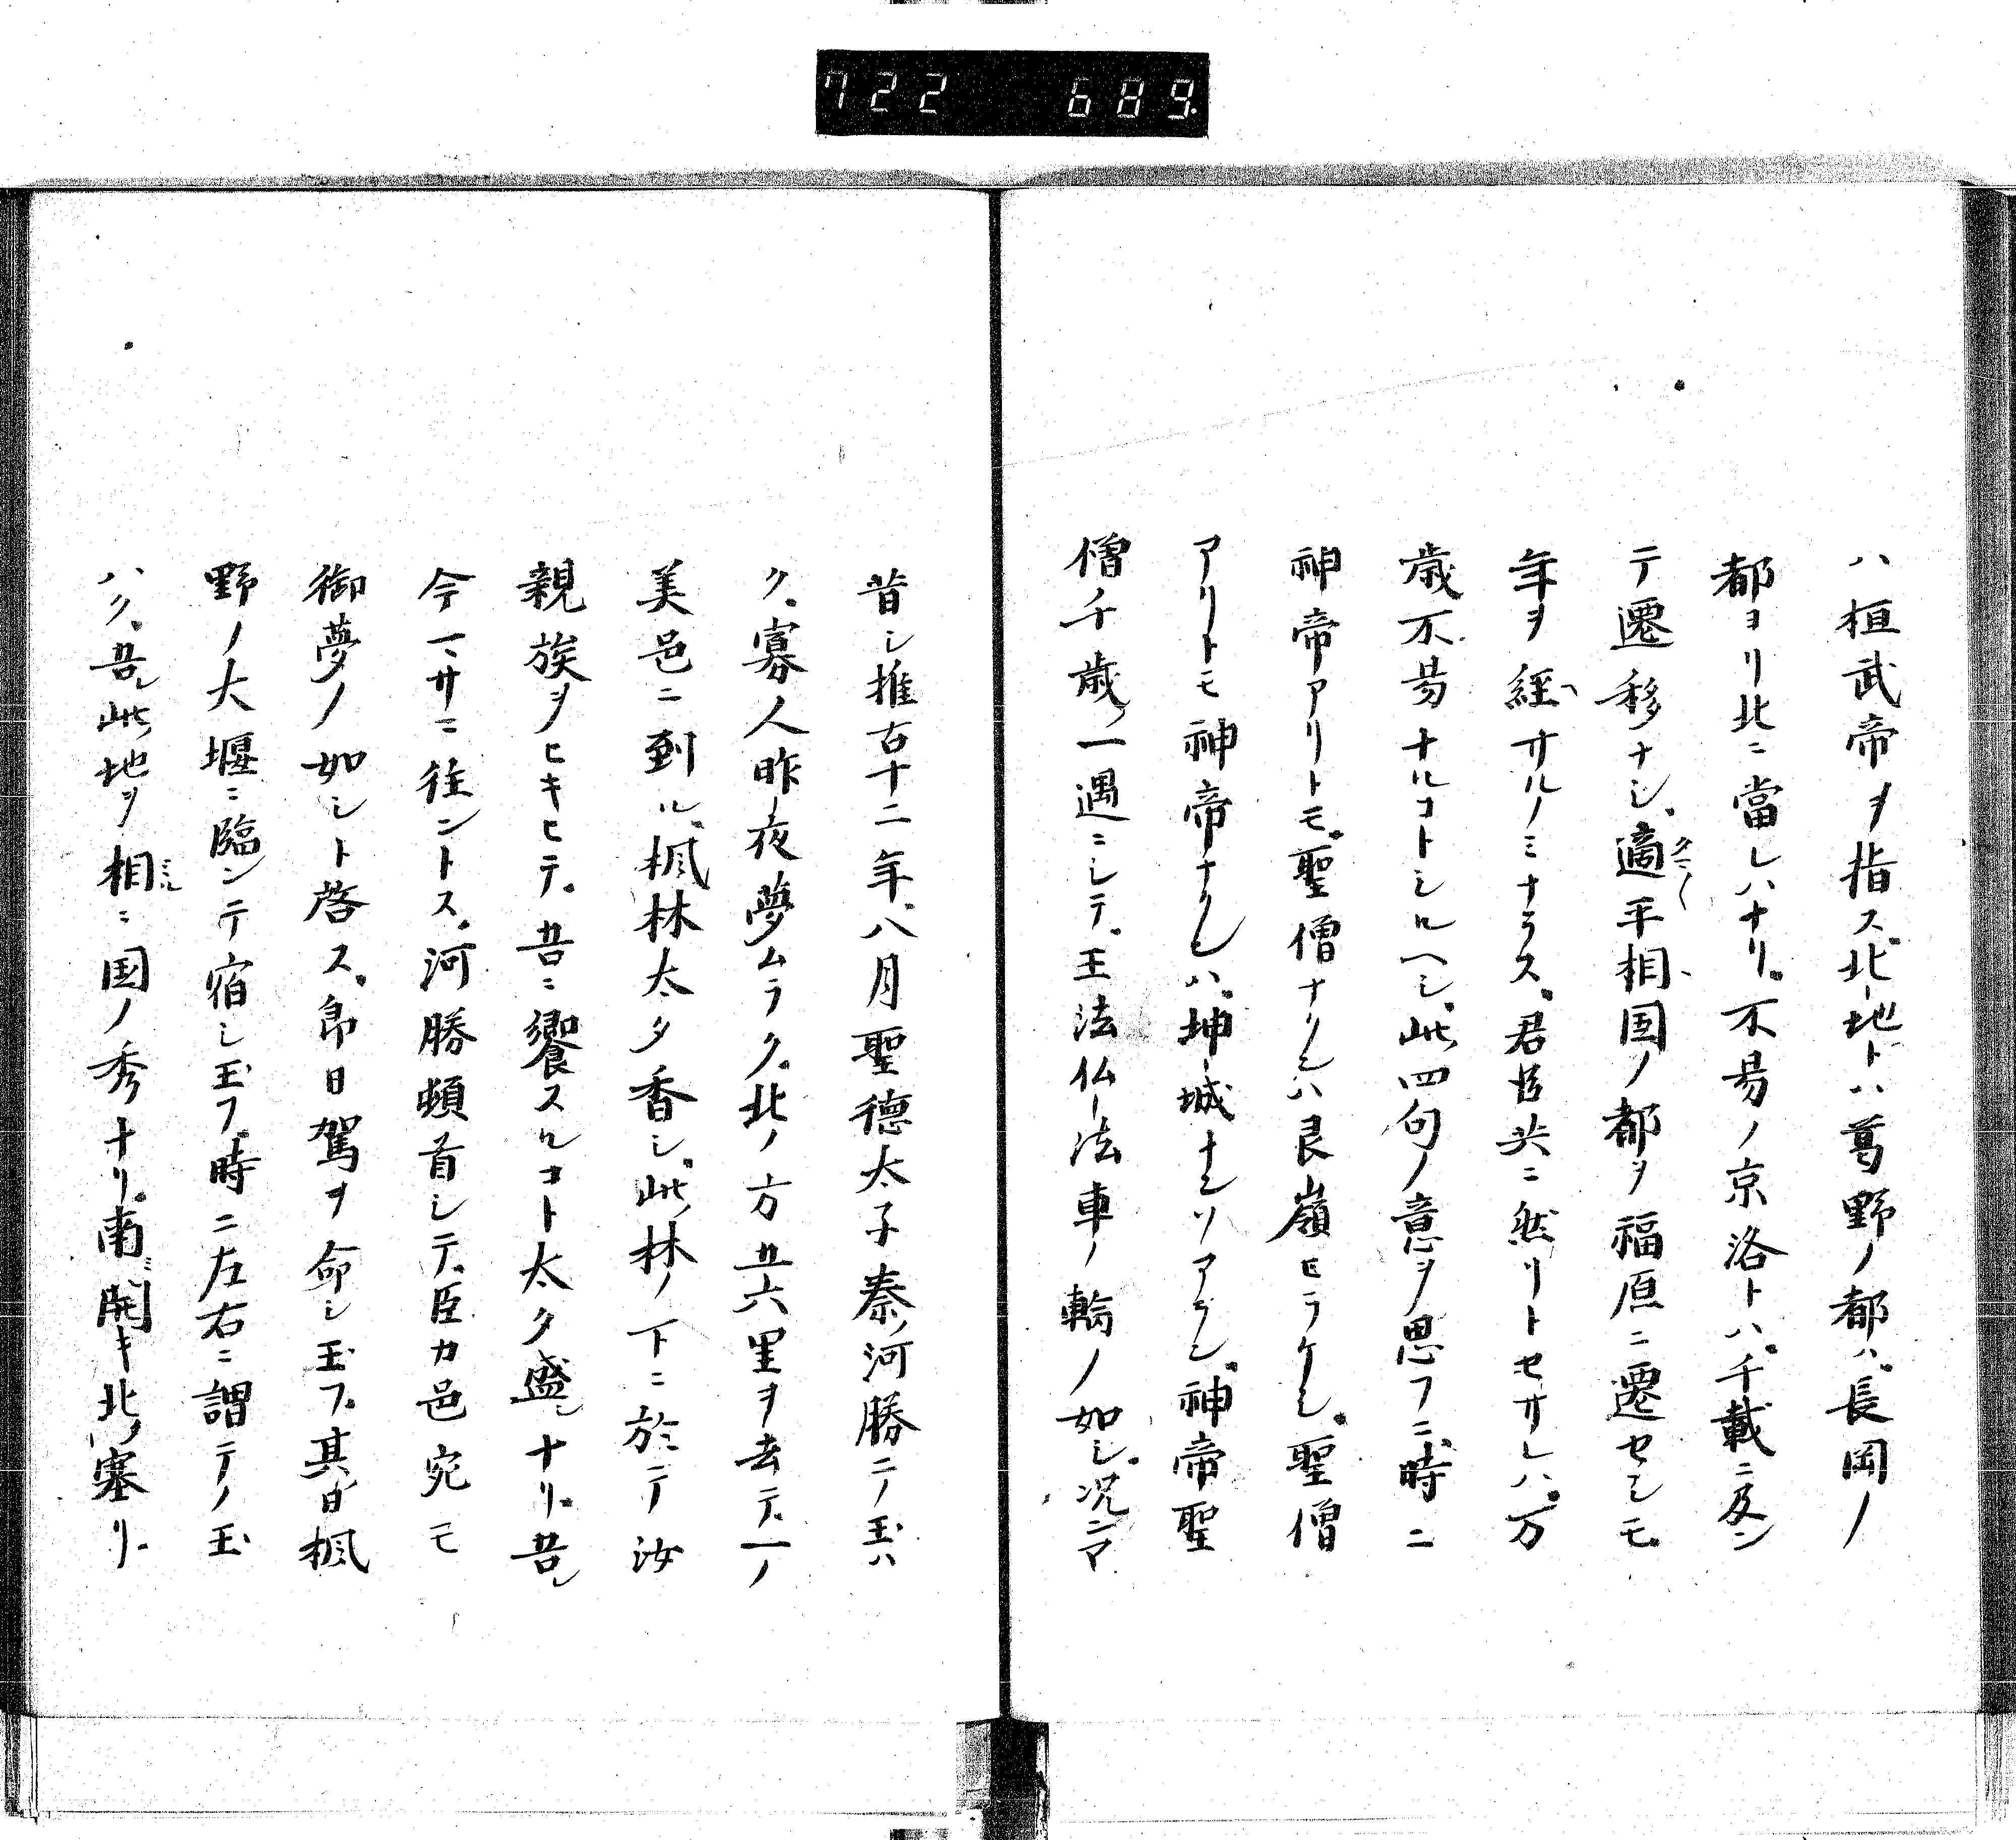 722 689.
ハ桓武帝ヲ指ス。北地トハ葛野ノ都ハ。長岡ノ
都ヨリ北ニ當レハナリ。不易ノ京洛トハ。千載ニ及ン
テ遷移ナシ。適タマ〱平相国ノ都ヲ福原ニ遷セシモ。
年ヲ経ヘサルノミナラス。君臣共ニ然リトセサレハ。万
歳不易ナルコトシルヘシ。此四句ノ意ヲ思フニ。時ニ
神帝アリトモ。聖僧ナクンハ艮嶺ヒラケシ。聖僧
アリトモ神帝ナクンハ。坤城ナンソアラン。神帝聖
僧千歳ノ一遇ニシテ。王法仏法車ノ輪ノ如シ。况ニマ
昔シ推古十二年。八月聖德太子秦ノ河勝ニノ玉ハ
ク。寡人昨夜夢ムラク。北ノ方五六里ヲ去テ。一ノ
美邑ニ到ル。楓林太タ香シ。此ノ林ノ下ニ於テ汝
親族ヲヒキヒテ。吾ニ饗スルコト太タ盛ナリ。吾レ
今マサニ往ントス。河勝頓首シテ。臣カ邑宛モ
御夢ノ如シト啓ス。即日駕ヲ命シ玉フ。其日楓
野ノ大堰ニ臨ンテ宿シ玉フ。時ニ左右ニ謂テノ玉
ハク。吾レ此地ヲ相ミルニ国ノ秀ナリ。南ニ開キ北ノ塞リ。